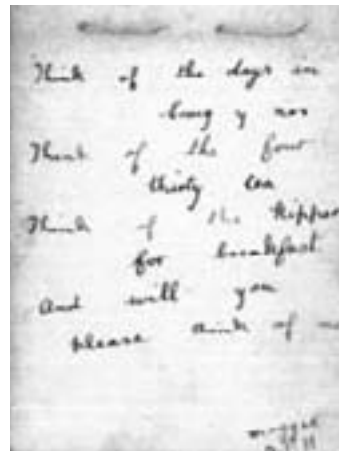 Think of the days in
Think of the four
thirty tea
Think of the Kipper
for breakfast
And will you
please think of me